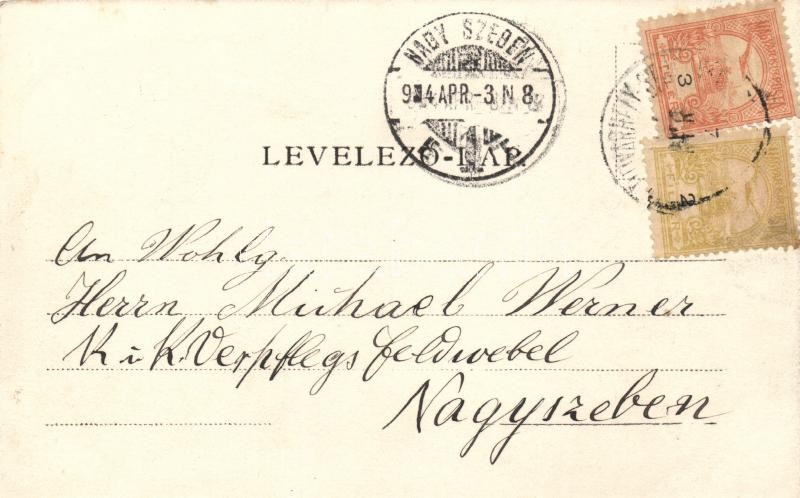 NAGY SZEBEN
904 APR.-3 N 8
LEVELEZŐ-LAP.
An Wohlg.
Herrn Michael Werner
K. i K. Verpflegs feldwebel
Nagyszeben